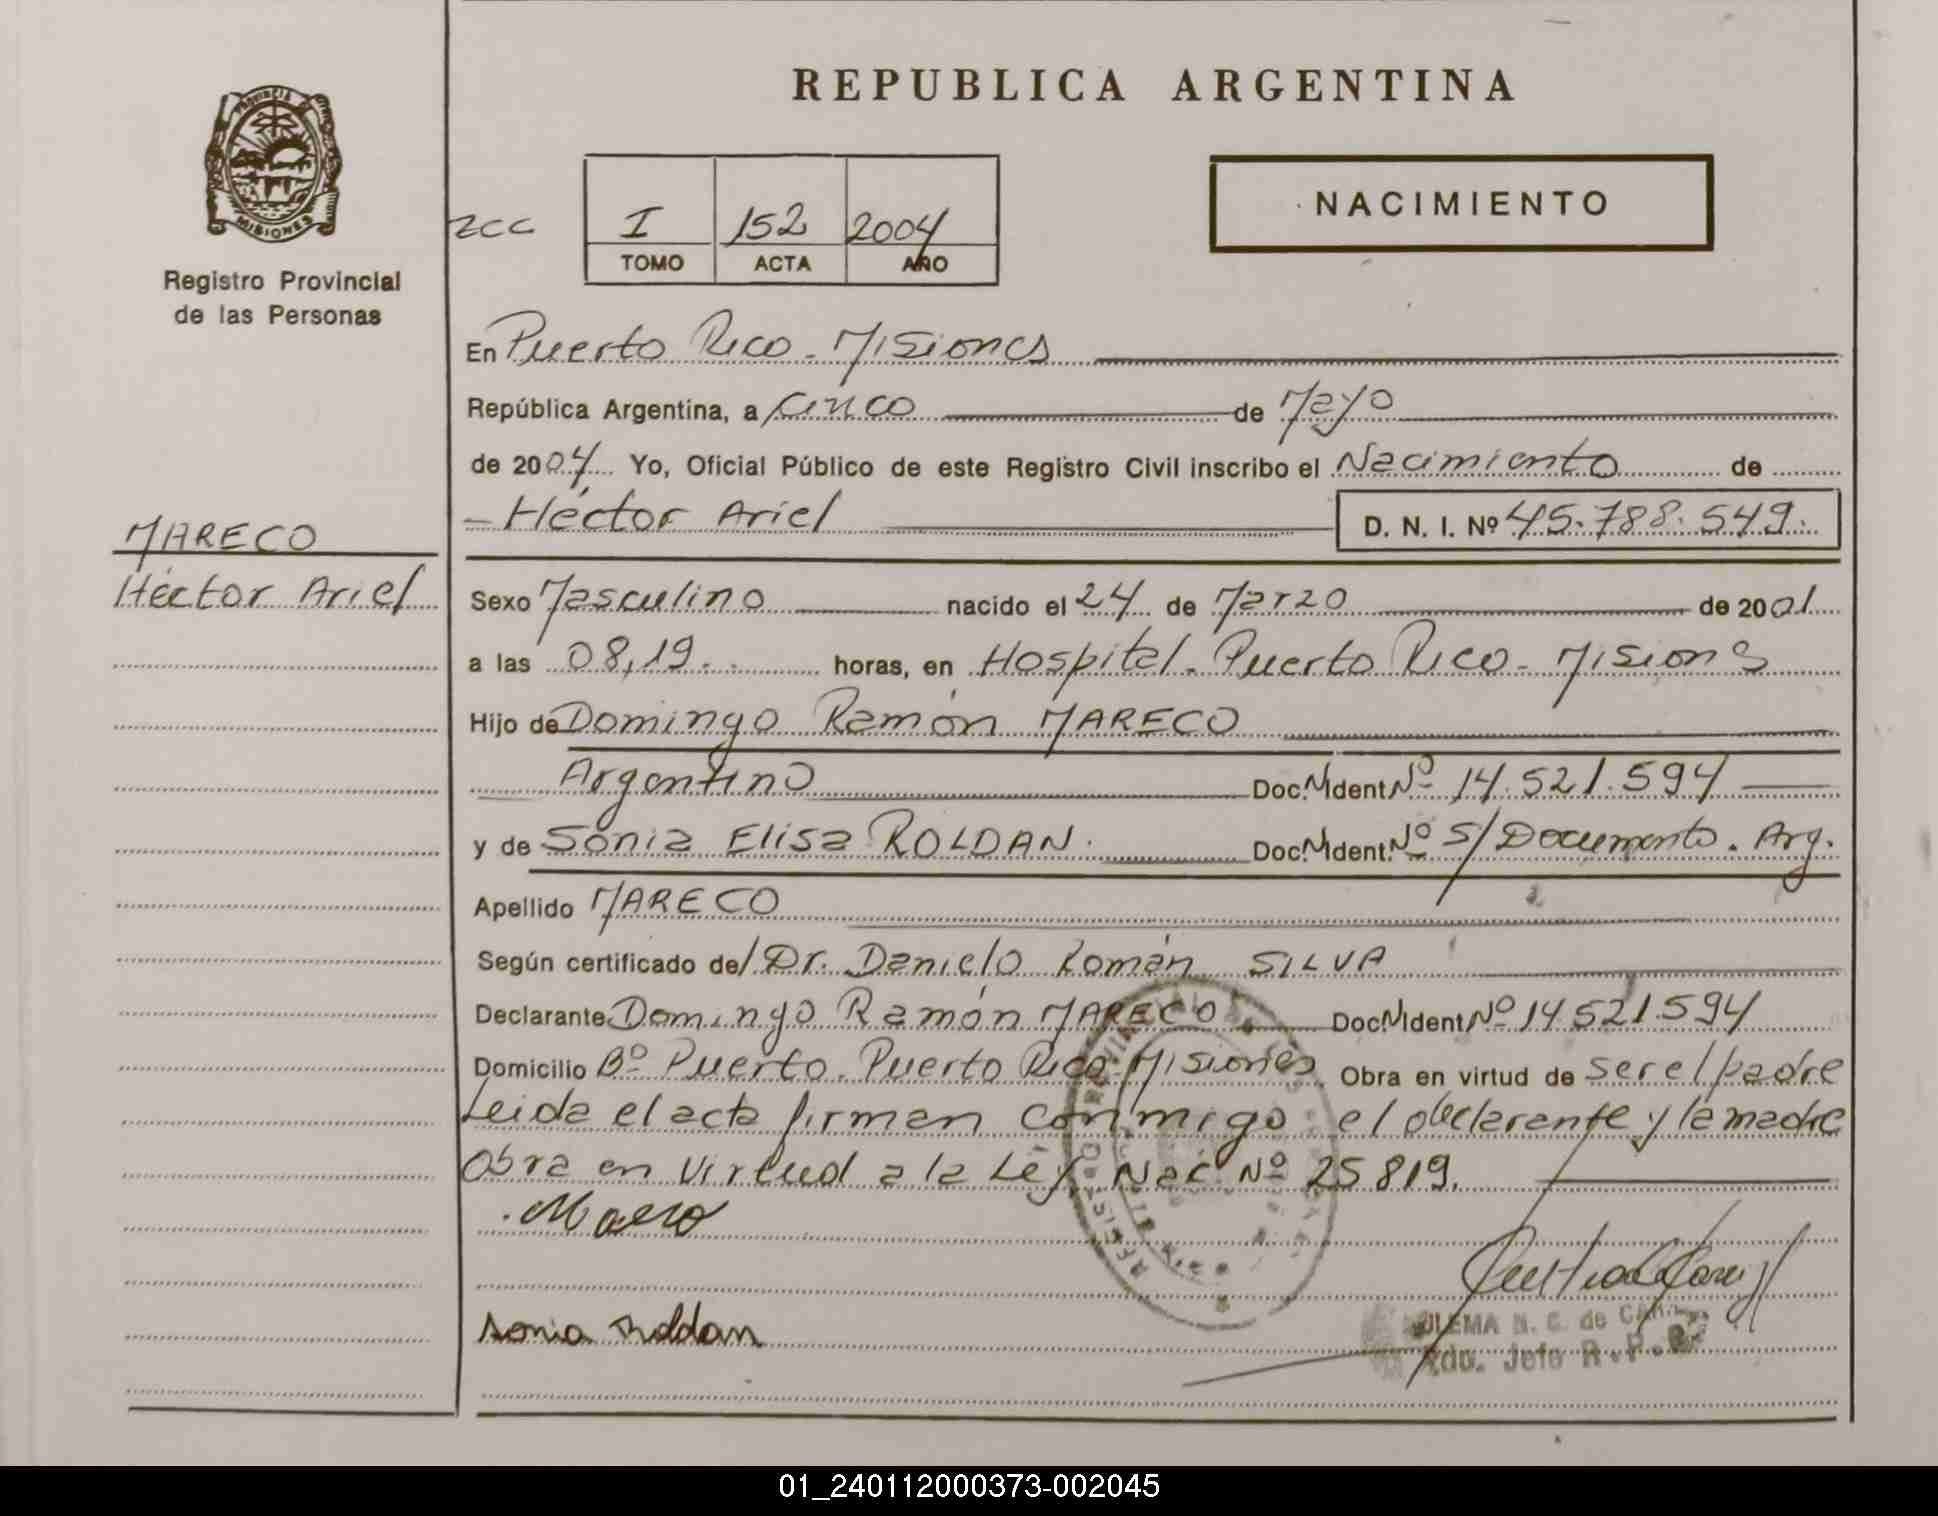 REPUBLICA ARGENTINA
Provincia
MISIONES
Registro Provincial
de las Personas
I 152 2004
TOMO ACTA AÑO
NACIMIENTO
En Puerto Rico - Misiones
República Argentina, a Cinco de Mayo
de 2004 Yo, Oficial Público de este Registro Civil inscribo el Nacimiento de
- Héctor Ariel D. N. I. Nº 45.788.549.
MARECO
Héctor Ariel
Sexo Masculino nacido el 24 de Marzo de 2001
a las 08,19. horas, en Hospital - Puerto Rico - Misions
Hijo de Domingo Ramón MARECO
Argentino Doc. N. Ident. Nº 14.521.594
y de Sonia Elisa ROLDAN. Doc. N. Ident. Nº S/Documento. Arg.
Apellido MARECO
Según certificado de/ Dr. Danielo Román SILVA
Declarante Domingo Ramón MARECO Doc. N. Ident. Nº 14521594
Domicilio Bº Puerto. Puerto Rico - Misiones Obra en virtud de ser el padre
Leida el acta firman conmigo el declarante y la madre
Obra en virtud a la Ley Nac. Nº 25819.
Sonia Roldan
N. C. de
Jefe R.P.
01_240112000373-002045